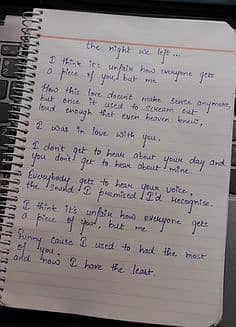 the night we left...
I think it's unfair how everyone gets
a piece of you, but me
How this love doesn't make sense anymore,
but once it used to scream out
loud enough that even heaven knew,
I was in love with you.
I don't get to hear about your day and
you don't get to hear about mine.
Everybody gets to hear your voice,
the sound I promised I'd recognise.
I think it's unfair how everyone gets
a piece of you, but me
Funny cause I used to had the most
of you,
and now I have the least.